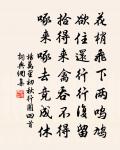 花梢飛下兩鳴鳩
欲住還行行復留
拾得來禽吞不得
啄來啄去竟成休
楊萬里初秋行圃四首
詞典網集